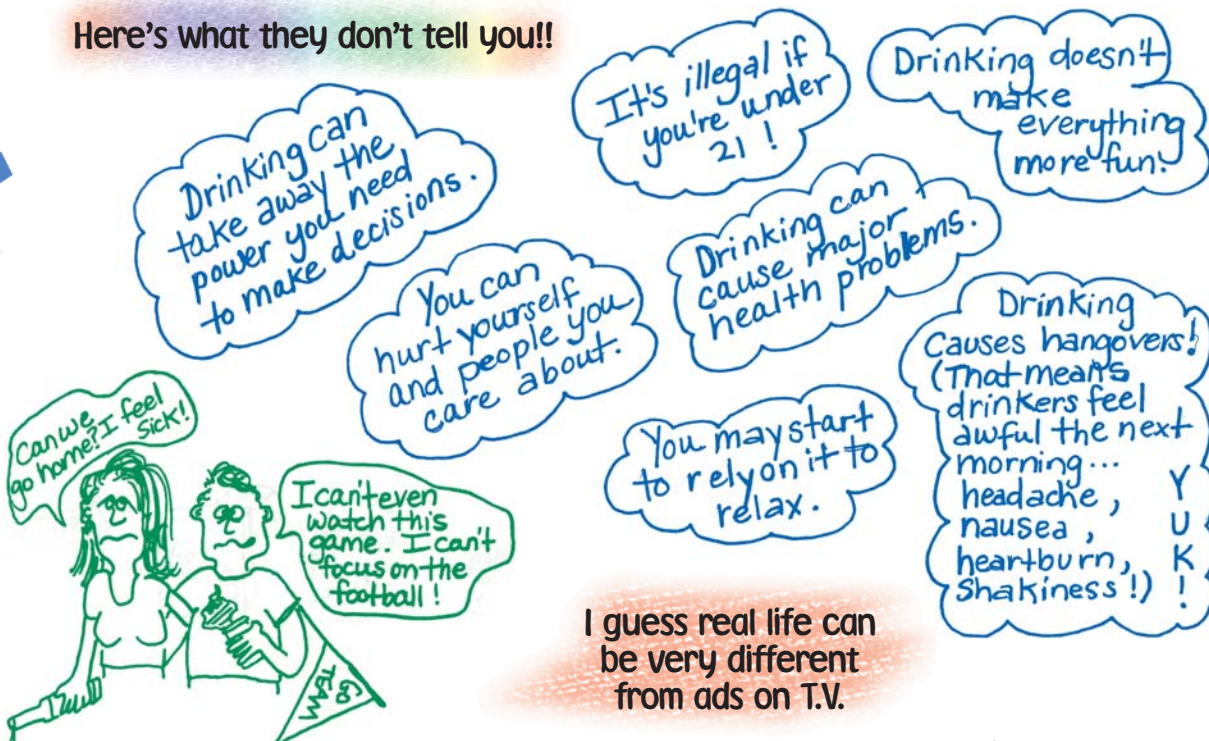 Here's what they don't tell you!!
Drinking can
take away the
power you need
to make decisions.
It's illegal if
you're under
21 !
Drinking doesn't
make
everything
more fun!
You can
hurt yourself
and people you
care about.
Drinking can
cause major
health problems.
Drinking
Causes hangovers!
(That means
drinkers feel
awful the next
morning...
headache,
nausea,
heartburn,
Shakiness!)
YUK!
You may start
to rely on it to
relax.
Can we
go home? I feel
Sick!
I can't even
watch this
game. I can't
focus on the
football!
GO
TEAM
I guess real life can
be very different
from ads on T.V.